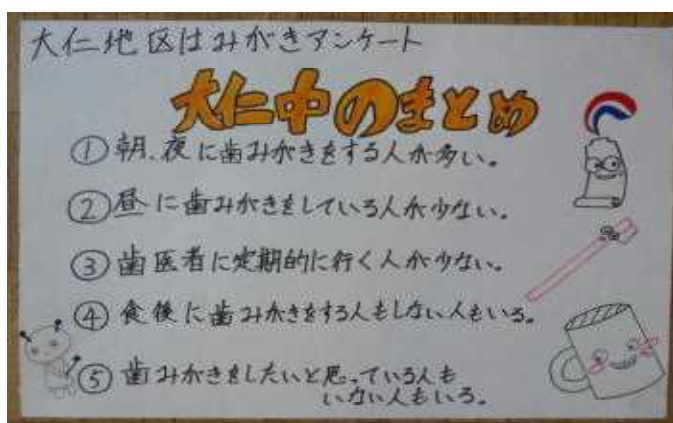 大仁地区はみがきアンケート
大仁中のまとめ
①朝、夜に歯みがきをする人が多い。
②昼に歯みがきをしている人が少ない。
③歯医者に定期的に行く人が少ない。
④食後に歯みがきをする人もしない人もいる。
⑤歯みがきをしたいと思っている人も
いない人もいる。